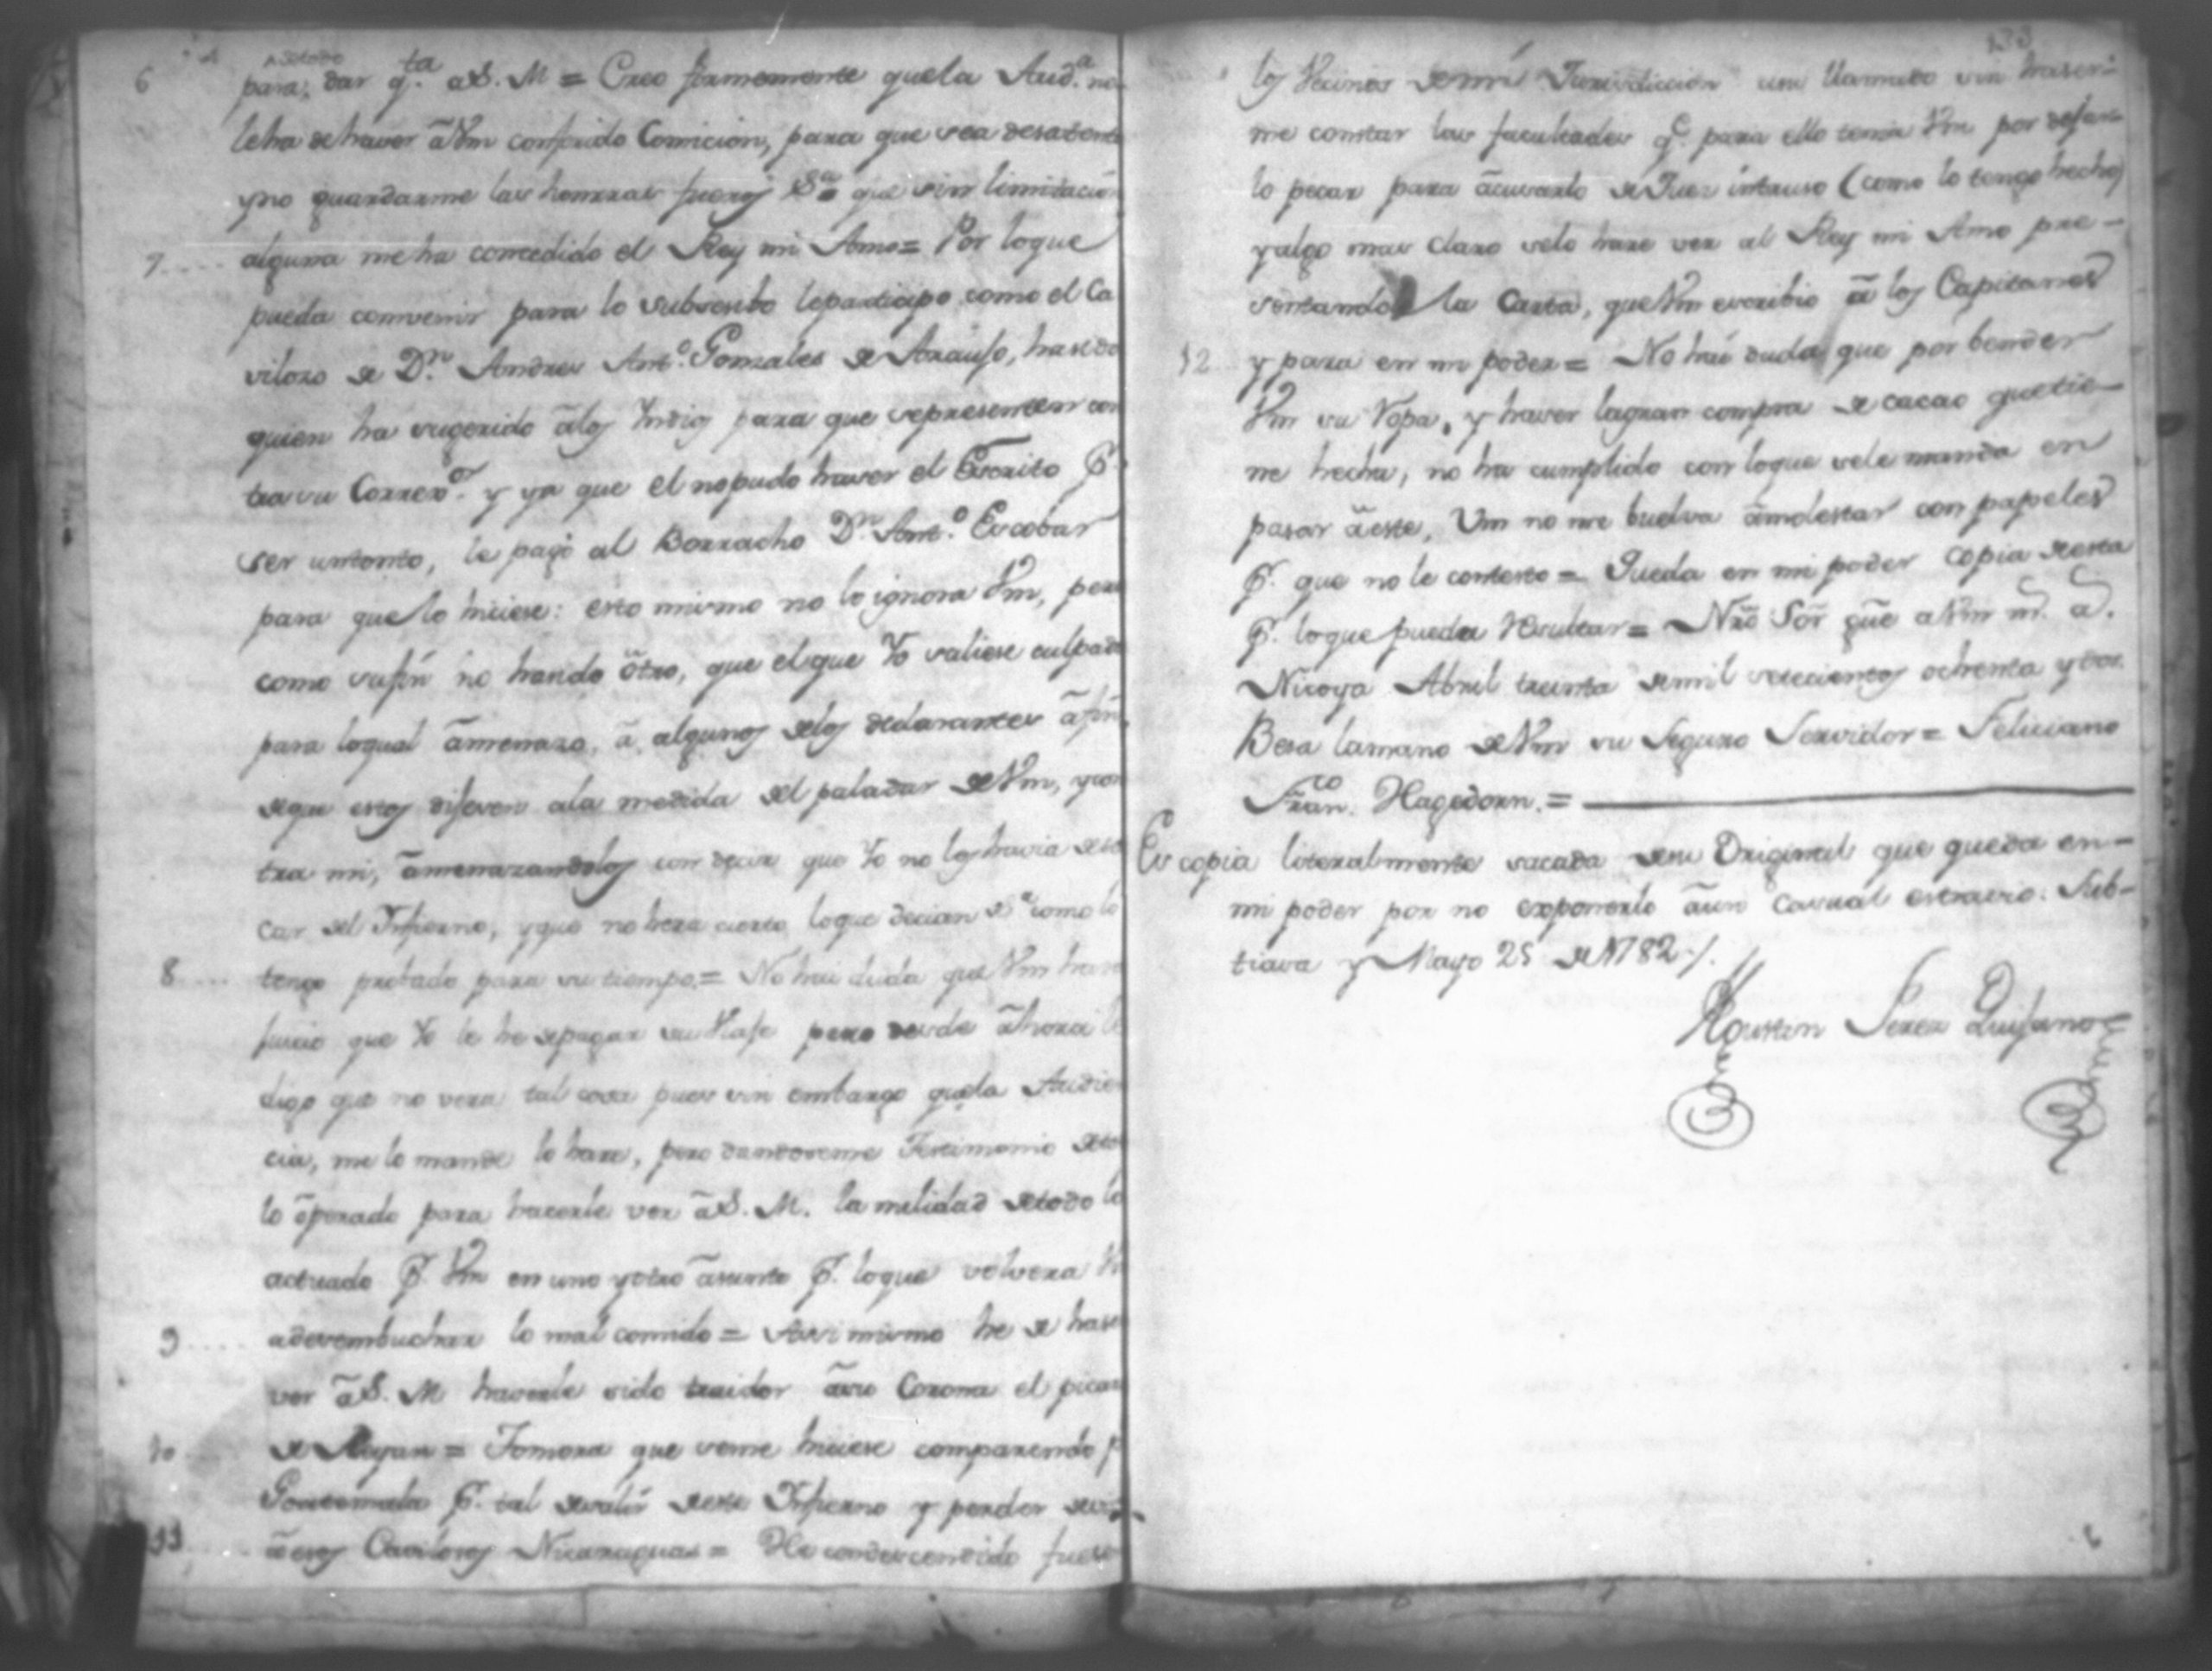 A Sotodo
6 para, dar q.ta a S. M = Creo firmemente quela Aud.a no
leha de haver â Vm conferido Comicion, para que vea desatento
yno guardarme las honrras fueros &a que sin limitacion
7.... alguna me ha concedido el Rey mi Amo = Por loque
pueda convenir para lo subsesibo leparticipo como el Ca
viloso de D.n Andres Ant.o Gonzales de Araujo, ha sido
quien ha sugerido âlos Yndios para que representen con
tra su Correx.or y ya que el nopudo haser el Escrito P.
ser untonto, le pagó al Borracho D.n Ant.o Escobar
para que lo hiciese: esto mismo no lo ignora Vm, pero
como sufin no hasido ôtro, que elque Yo saliese culpado
para loqual âmenaso, â algunos delos declarantes âfin
deque estos dijesen ala medida del paladar de Vm, ycon
tra mi, âmenazandolos con decir que Yo no los havia de sa
car del Infierno, yque no hera cierto loque decian &a como lo
8.... tengo probado para su tiempo = No hai duda que Vm hara
juicio que Yo le he depagar su Viaje pero desde âhora le
digo que no vera tal cosa pues sin embargo quela Audien
cia, me lo mande lo hare, pero dandoseme Testimonio deto
lo ôperado para hacerle ver â S. M. la nulidad detodo lo
actuado P. Vm en uno yotro âsunto P. loque volvera Vm
9.... adesembuchar lo mal comido = Assi mismo he de haser
ver â S. M haverle sido traidor âsu Corona el picaro
10 de Alyan = Tomara que seme hiciese comparendo p
Goatemala P. tal desalir deeste Infierno y perder de vis
11.... âesos Cavilosos Nicaraguas = He condescendido fuesen
133
los Vecinos demi Jurisdiccion aun llamado sin haser-
me constar las facultades q.e para ello tenia Vm por dejar-
lo pecar para âcusarlo de Juez intruso (como lo tengo hecho)
yalgo mas claro selo hare ver al Rey mi Amo pre-
sentando la Carta, queVm escribio â los Capitanes
12 y para en mi poder = No hai duda que por bender
Vm su Ropa, y haser lagran compra de cacao quetie-
ne hecha, no ha cumplido con loque sele manda en
pasar âeste, Vm no me buelva âmolestar con papeles
P. que no le contesto = Queda en mi poder copia deesta
P. loque pueda Resultar = Nrô Sôr gûe aVm m.s a.s
Nicoya Abril treinta demil setecientos ochenta ydos.
Besa lamano deVm su Seguro Servidor = Feliciano
Fran.co Hagedorn. =
Es copia literalmente sacada desu Original que queda en-
mi poder por no exponerlo âun casual estravio. Sub-
tiava y Mayo 25 de 1782 ./.
Agustin Perez Quijano